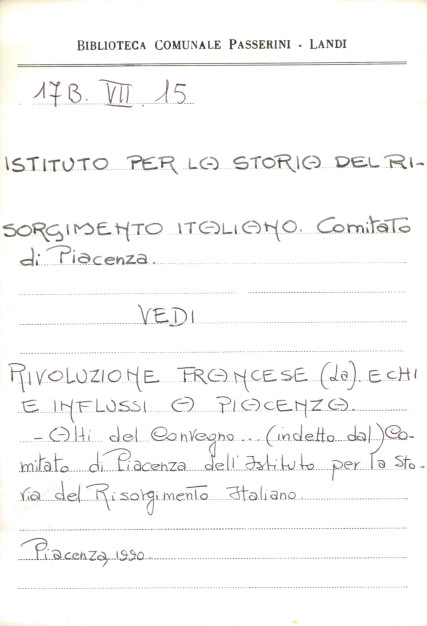 BIBLIOTECA COMUNALE PASSERINI - LANDI
17B. VII 15
ISTITUTO PER LA STORIA DEL RI-
SORGIMENTO ITALIANO. Comitato
di Piacenza.
VEDI
RIVOLUZIONE FRANCESE (La). ECHI
E INFLUSSI A PIACENZA.
- Atti del Convegno... (indetto dal) Co-
mitato di Piacenza dell'Istituto per la Sto-
ria del Risorgimento Italiano.
Piacenza, 1990.